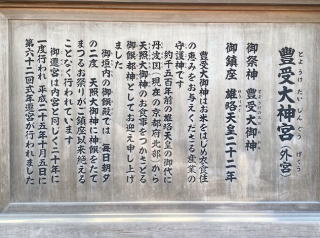 豊受大神宮（外宮）
とようけ だいじんぐう げくう
御祭神 豊受大御神
とようけのおおみかみ
御鎮座 雄略天皇二十二年
豊受大御神はお米をはじめ衣食住
の恵みをお与えくださる産業の
守護神です
約千五百年前の雄略天皇の御代に
丹波国（現在の京都府北部）から
天照大御神のお食事をつかさどる
御饌都神としてお迎え申し上げ
ました
御垣内の御饌殿では 毎日朝夕
の二度 天照大御神に神饌をたて
まつるお祭りがご鎮座以来絶える
ことなく行われています
御遷宮は内宮と同じく二十年に
一度行われ 平成二十五年十月五日に
第六十二回式年遷宮が行われました